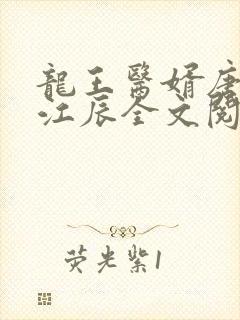 龍王醫婿唐
江辰全文閱
荧光紫1